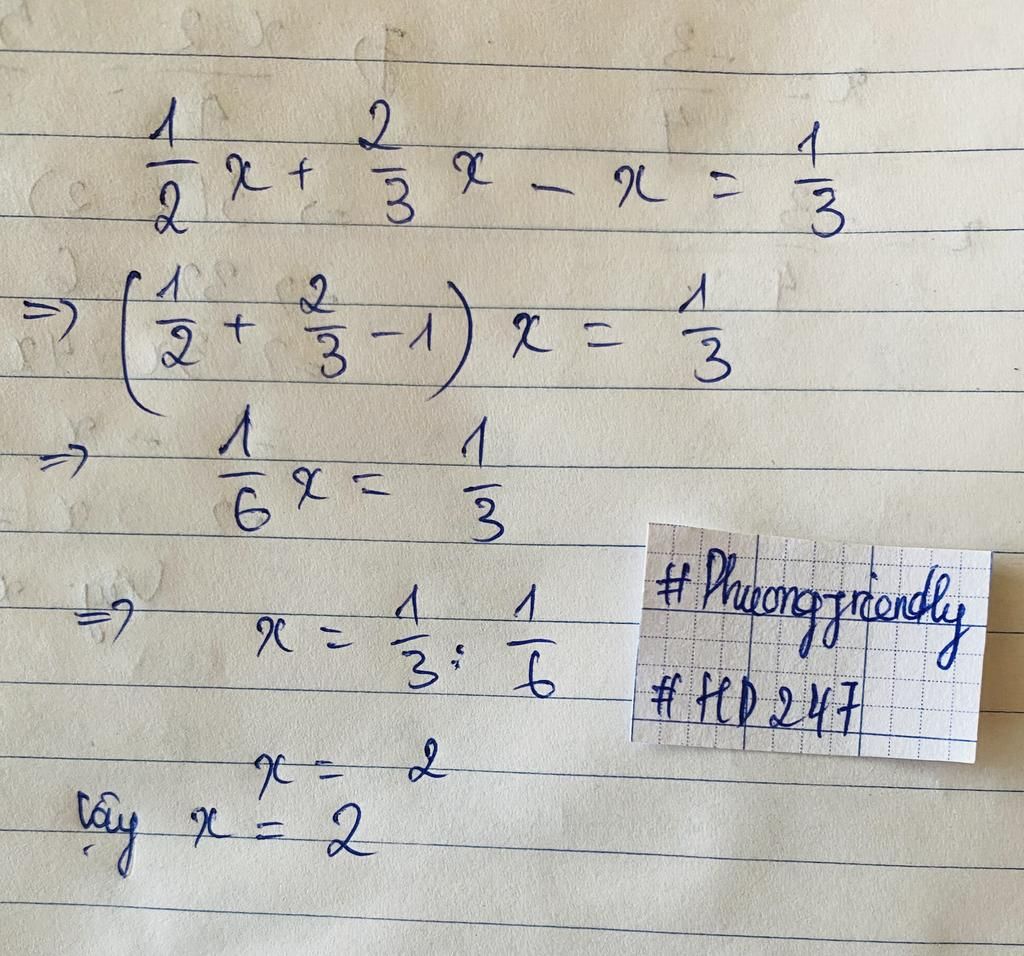 1/2 x + 2/3 x - x = 1/3
=> (1/2 + 2/3 - 1) x = 1/3
=> 1/6 x = 1/3
=> x = 1/3 : 1/6
x = 2
Vậy x = 2
# Phuongfriendly
# HD 247